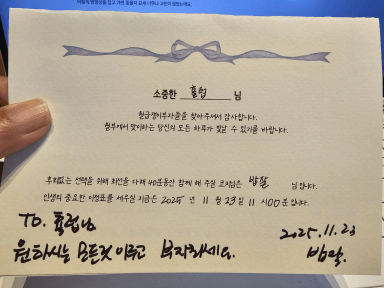 소중한 홀럽 님
월급쟁이부자들을 찾아주셔서 감사합니다.
월부에서 맞이하는 당신의 모든 하루가 빛날 수 있기를 바랍니다.
후회없는 선택을 위해 최선을 다해 40분동안 함께 해 주실 코치님은 밤잘 님입니다.
인생의 중요한 이정표를 세우실 시간은 2025 년 11 월 23일 11 시00분 입니다.
TO. 홀럽님
2025.11.23
원하시는 모든것 이루고 부자되세요.